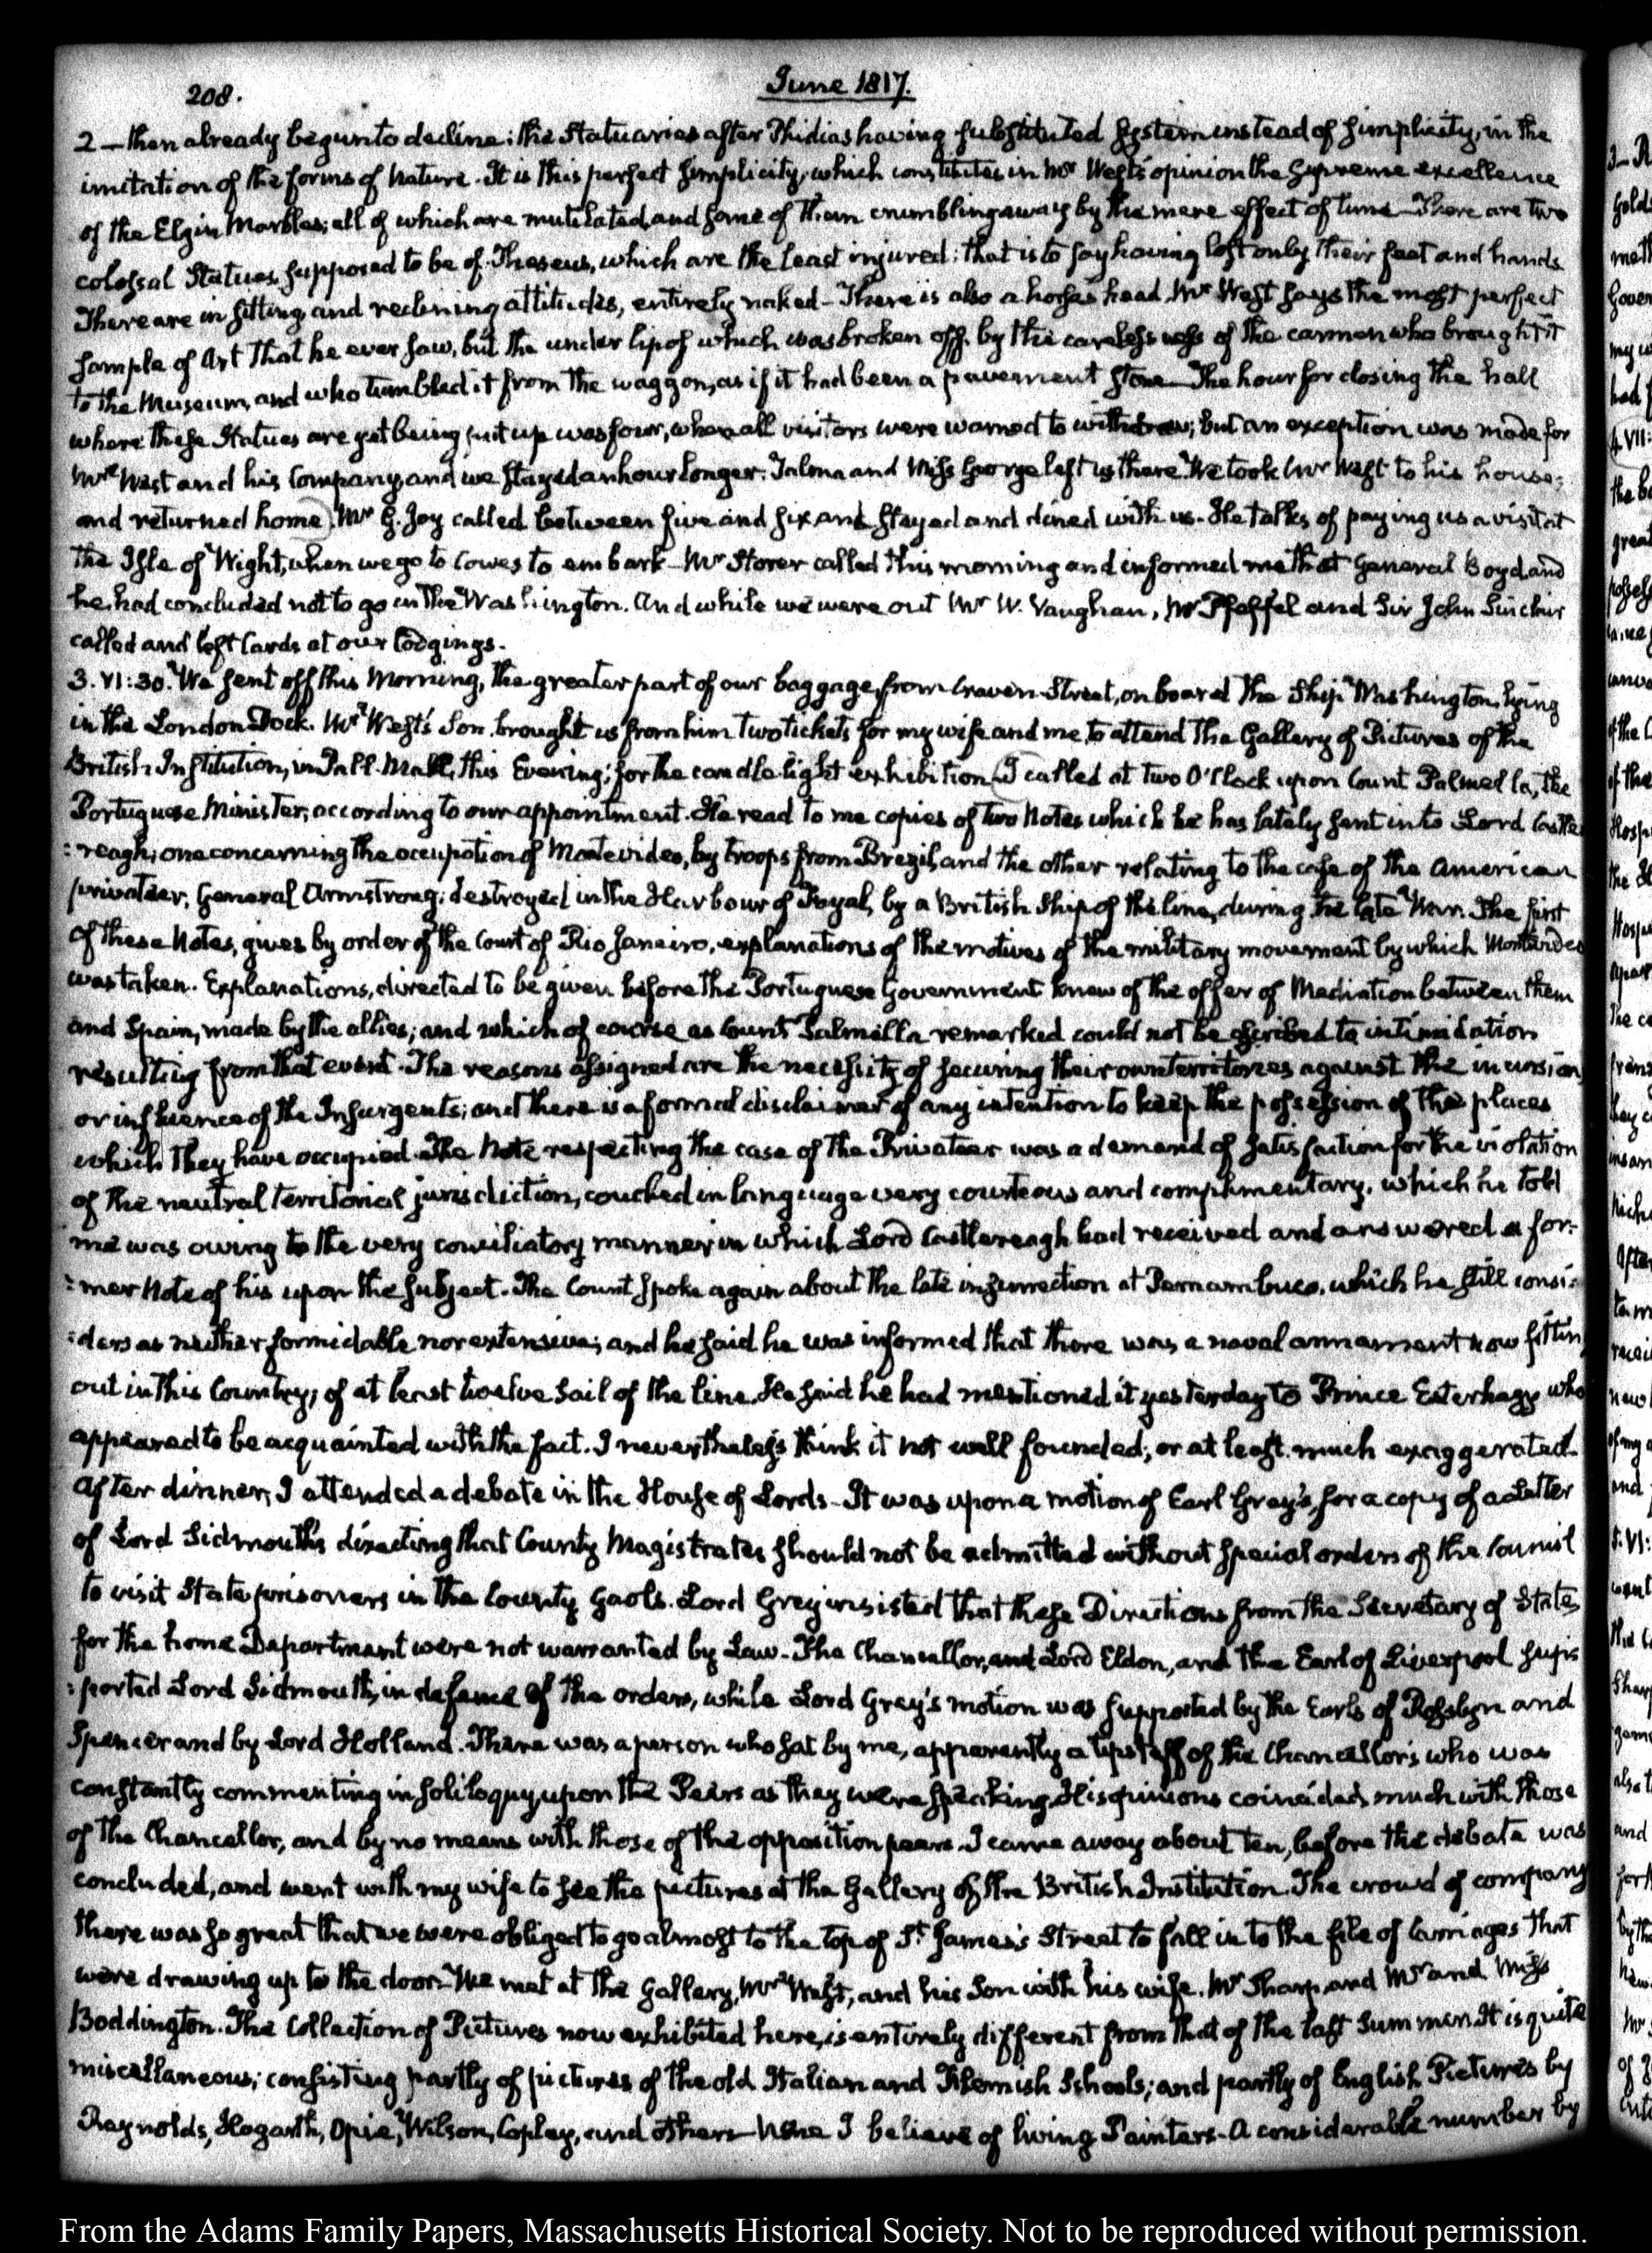 208.
June 1817.
2 — then already begun to decline; the Statuaries after Phidias having substituted System instead of simplicity, in the
imitation of the forms of Nature. It is this perfect simplicity, which constitutes in Mr West's opinion the Supreme excellence
of the Elgin Marbles; all of which are mutilated and some of them crumbling away by the mere effect of time — There are two
colossal Statues, supposed to be of Theseus, which are the least injured; that is to say having lost only their feet and hands
There are in sitting and reclining attitudes, entirely naked — There is also a horse's head, Mr West says the most perfect
sample of Art that he ever saw, but the under lip of which was broken off, by the carelessness of the carmen who brought it
to the Museum, and who tumbled it from the waggon, as if it had been a pavement stone — The hour for closing the hall
where these Statues are yet being put up was four, when all visitors were warned to withdraw; but an exception was made for
Mr West and his Company, and we stayed an hour longer. Talma and Miss George left us there. We took Mr West to his house;
and returned home. Mr G. Joy called between five and six and stayed and dined with us. He talks of paying us a visit at
the Isle of Wight, when we go to Cowes to embark — Mr Storer called this morning and informed me that General Boyd and
he, had concluded not to go in the Washington. And while we were out Mr W. Vaughan, Mr Pfeffel and Sir John Sinclair
called and left Cards at our lodgings.
3. VI:30. We sent off this Morning, the greater part of our baggage, from Craven Street, on board the Ship Washington, lying
in the London Dock. Mr West's Son, brought us from him two tickets for my wife and me, to attend the Gallery of Pictures of the
British Institution, in Pall-Mall, this Evening; for the candle-light exhibition. I called at two O'Clock upon Count Palmella, the
Portuguese Minister, according to our appointment. He read to me copies of two Notes which he has lately sent in to Lord Castle
:reagh; one concerning the occupation of Montevideo, by troops from Brazil, and the other relating to the case of the American
privateer, General Armstrong; destroyed in the Harbour of Fayal, by a British Ship of the line, during the late War. The first
of these Notes, gives by order of the Court of Rio Janeiro, explanations of the motives of the military movement by which Montevideo
was taken. Explanations, directed to be given before the Portuguese Government knew of the offer of Mediation between them
and Spain, made by the allies; and which of course as Count Palmella remarked could not be ascribed to intimidation
resulting from that event. The reasons assigned are the necessity of securing their own territories against the incursion
or influence of the Insurgents; and there is a formal disclaimer of any intention to keep the possession of the places
which they have occupied. The Note respecting the case of the Privateer was a demand of satisfaction for the violation
of the neutral territorial jurisdiction, couched in language very courteous and complimentary, which he told
me was owing to the very conciliatory manner in which Lord Castlereagh had received and answered a for:
:mer Note of his upon the subject. The Count spoke again about the late insurrection at Pernambuco, which he still consi:
:ders as neither formidable nor extensive; and he said he was informed that there was a naval armament now fitting
out in this Country; of at least twelve Sail of the line. He said he had mentioned it yesterday to Prince Esterhazy who
appeared to be acquainted with the fact. I nevertheless think it not well founded; or at least much exaggerated.
After dinner, I attended a debate in the House of Lords — It was upon a motion of Earl Grey's, for a copy of a Letter
of Lord Sidmouth's directing that County Magistrates should not be admitted without special orders of the Council
to visit State prisoners in the County Gaols. Lord Grey insisted that these Directions from the Secretary of State
for the home Department were not warranted by Law — The Chancellor, and Lord Eldon, and the Earl of Liverpool sup:
:ported Lord Sidmouth, in defence of the orders, while Lord Grey's motion was supported by the Earls of Rosslyn and
Spencer and by Lord Holland. There was a person who sat by me, apparently a tipstaff of the Chancellor's who was
constantly commenting in soliloquy, upon the Peers as they were speaking. His opinions coincided much with those
of the Chancellor, and by no means with those of the opposition peers. I came away about ten, before the debate was
concluded, and went with my wife to see the pictures at the Gallery of the British Institution. The crowd of company
there was so great that we were obliged to go almost to the top of St James's Street to fall in to the file of Carriages that
were drawing up to the door. We met at the Gallery, Mr West, and his Son with his wife. Mr Sharp, and Mr and Miss
Boddington. The Collection of Pictures now exhibited here, is entirely different from that of the last Summer. It is quite
miscellaneous; consisting partly of pictures of the old Italian and Flemish Schools; and partly of English Pictures by
Reynolds, Hogarth, Opie, Wilson, Copley, and others — None I believe of living Painters — A considerable number by
From the Adams Family Papers, Massachusetts Historical Society. Not to be reproduced without permission.